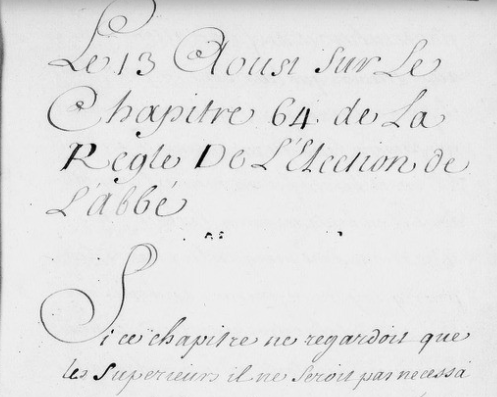 Le 13 Aoust sur Le
Chapitre 64 de La
Regle De L'Election de
L'abbé
Si ce chapitre ne regardoit que
les superieurs il ne seroit pas necessa